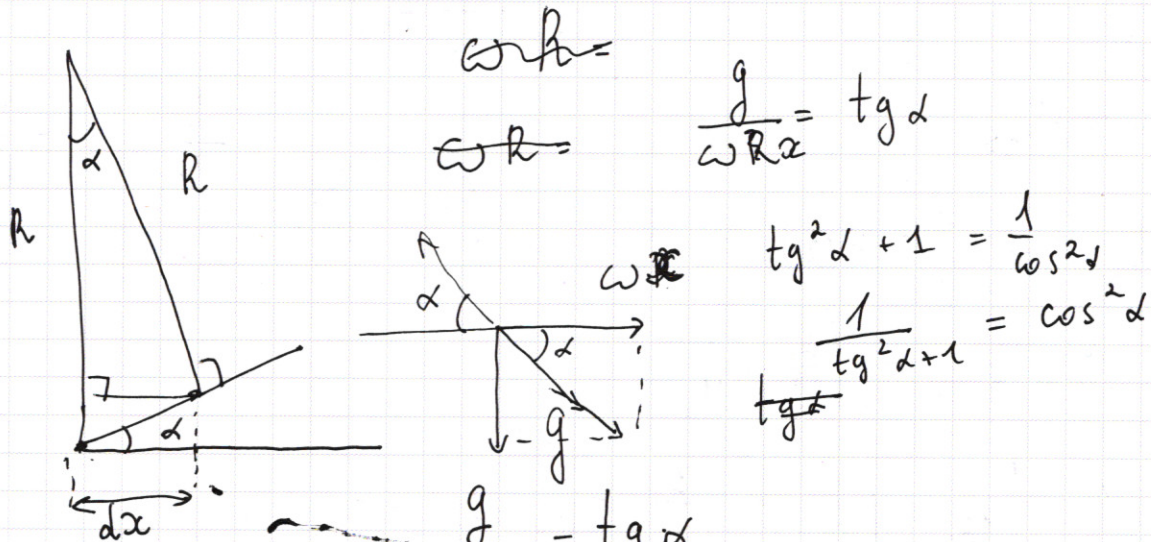 ωR=
ωR=
g/(ωRx) = tg α
α
R
R
tg² α + 1 = 1/cos² α
1/(tg² α+1) = cos² α
tg α
α
α
ω
g
α
dx
g = tg α